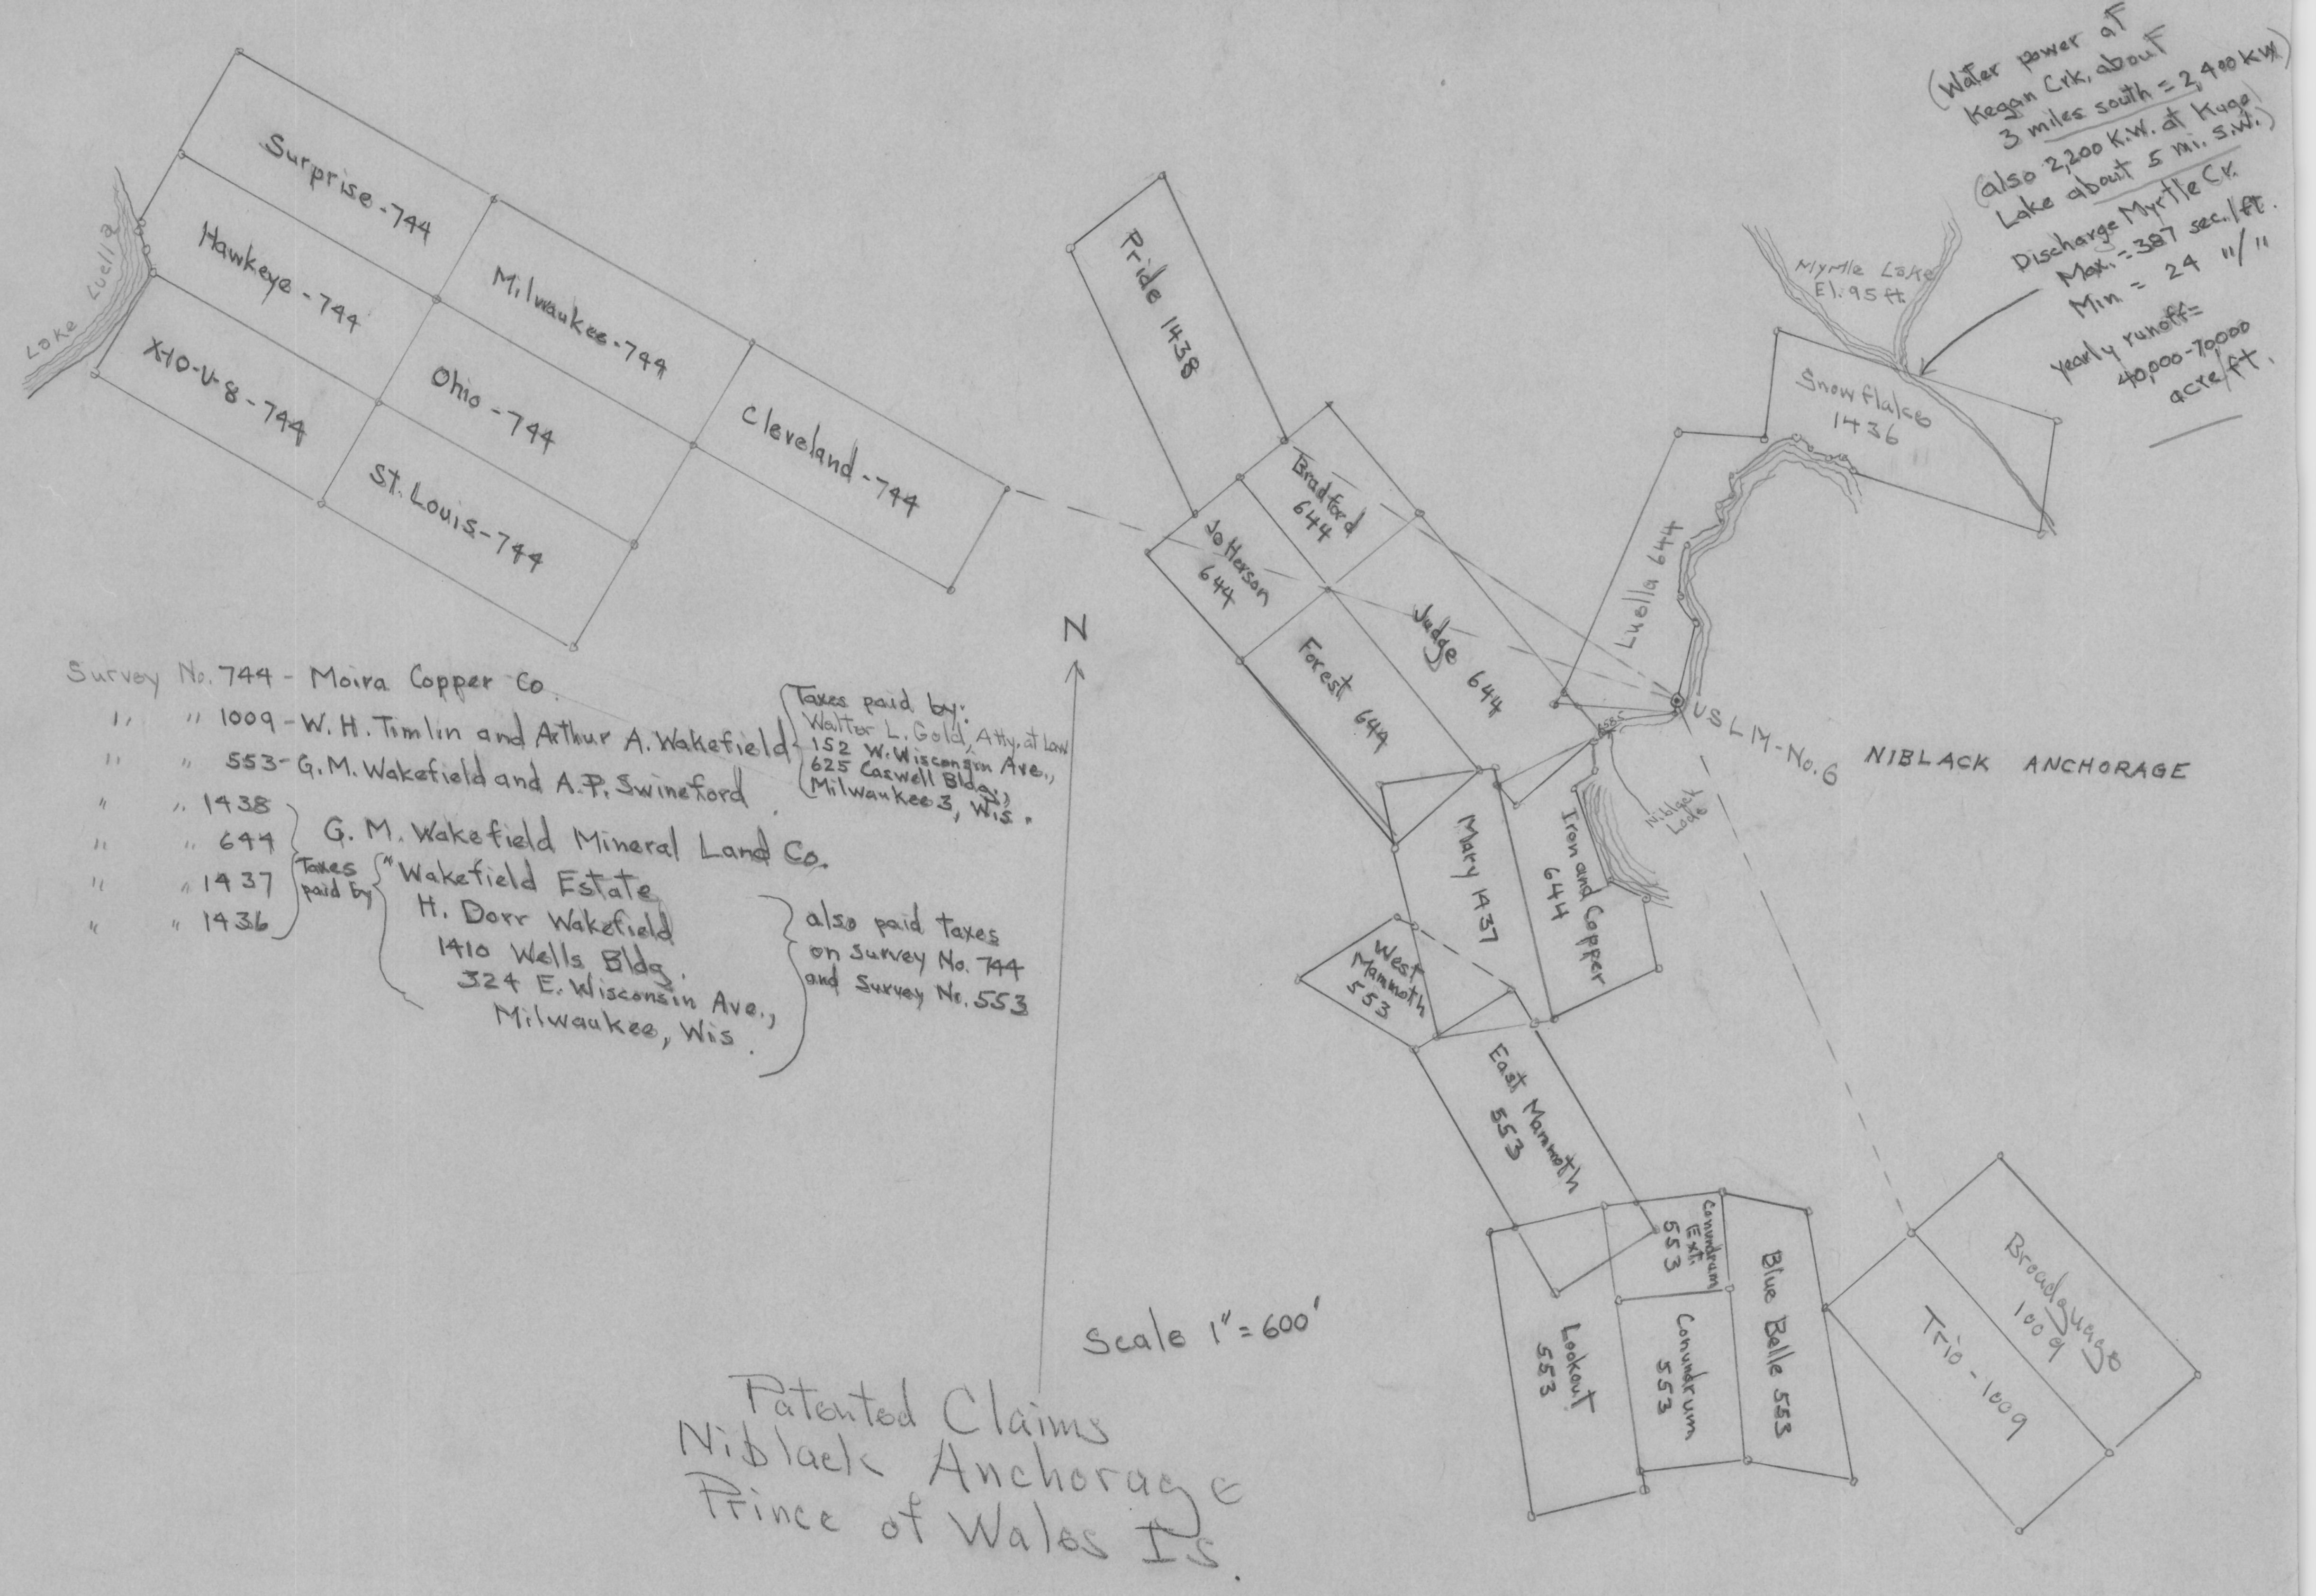 (Water power at
Kegan Crk, about
3 miles south = 2,400 KW)
(also 2,200 K.W. at Kugo
Lake about 5 mi. s.w.)
Discharge Myrtle Cr.
Max. = 387 sec./ft.
Min = 24 "/"
yearly runoff=
40,000-70,000
acre/ft.
Myrtle Lake
El. 95 ft.
Snowflake
1436
Surprise-744
Hawkeye-744
X-10-U-8-744
Lake Luella
Milwaukee-744
Ohio-744
St. Louis-744
Cleveland-744
Pride 1438
Bradford
644
Jefferson
644
Forest 644
Judge 644
Luella 644
USLM-No. 6
NIBLACK ANCHORAGE
Niblack
Lode
Iron and Copper
644
Mary 1437
West
Mammoth
553
East Mammoth
553
Conundrum
Ext.
553
Conundrum
553
Lookout
553
Blue Belle 553
Broadguage
1009
Trio-1009
N
Survey No. 744 - Moira Copper Co.
" " 1009 - W. H. Timlin and Arthur A. Wakefield
Taxes paid by:
Walter L. Gold, Atty. at Law
152 W. Wisconsin Ave.,
625 Caswell Bldg.,
Milwaukee 3, Wis.
" " 553 - G. M. Wakefield and A. P. Swineford
" " 1438
" " 644
" " 1437
" " 1436
G. M. Wakefield Mineral Land Co.
Taxes
paid by
"Wakefield Estate
H. Dorr Wakefield
1410 Wells Bldg.
324 E. Wisconsin Ave.,
Milwaukee, Wis.
also paid taxes
on survey No. 744
and Survey No. 553
Scale 1" = 600'
Patented Claims
Niblack Anchorage
Prince of Wales Is.